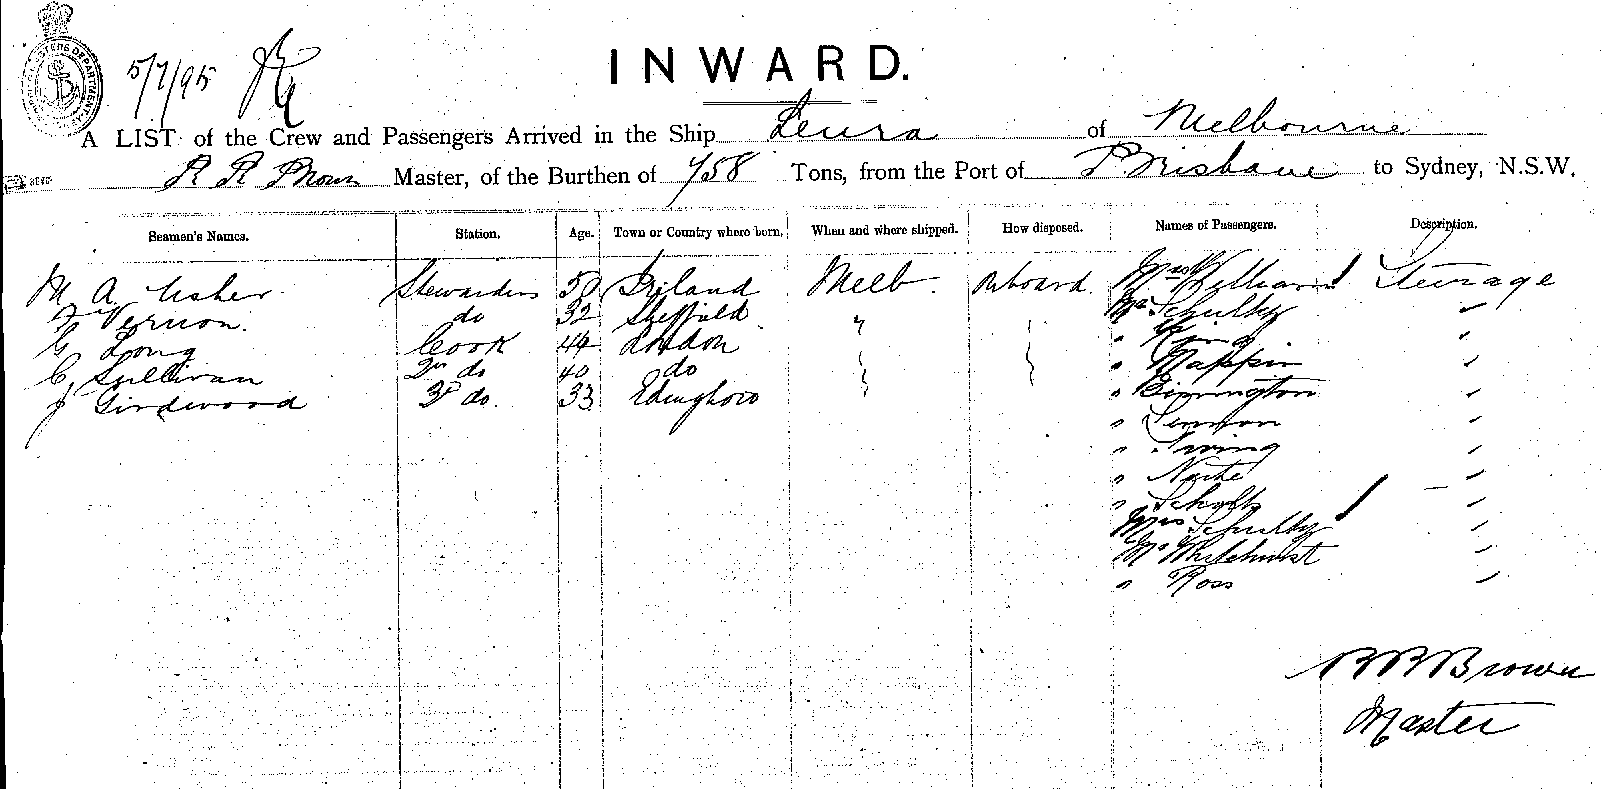 5/7/95
INWARD.
A LIST of the Crew and Passengers Arrived in the Ship Leura of Melbourne
R R Brown Master, of the Burthen of 758 Tons, from the Port of Brisbane to Sydney, N.S.W.
Seamen's Names. Station. Age. Town or Country where born. When and where shipped. How disposed. Names of Passengers. Description.
M A Usher Stewardess 50 Ireland Melb. Onboard Mrs Williams Steerage
F Vernon. do 32 Sheffield " Mr Schultz "
G Long Cook 44 London " King "
C Sullivan 2nd do 40 do " Mappin "
J Girdwood 3rd do. 33 Edinghoro " Binnington "
"
"
" "
" "
Mrs Schultz "
Mr Whitehurst "
" Ross "
R R Brown
Master